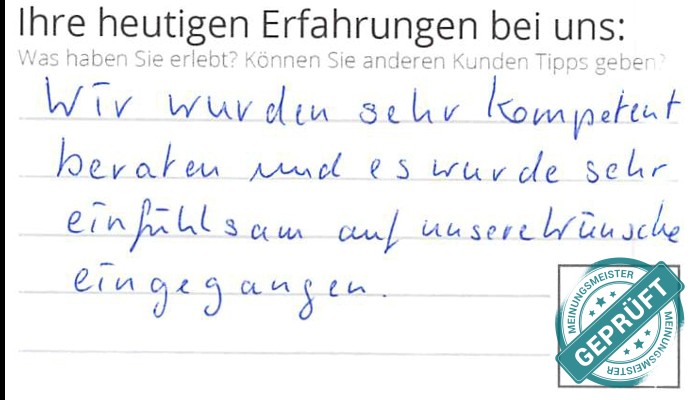 Ihre heutigen Erfahrungen bei uns:
Was haben Sie erlebt? Können Sie anderen Kunden Tipps geben?
Wir wurden sehr kompetent
beraten und es wurde sehr
einfühlsam auf unsere Wünsche
eingegangen.
MEINUNGSMEISTER
GEPRÜFT
MEINUNGSMEISTER